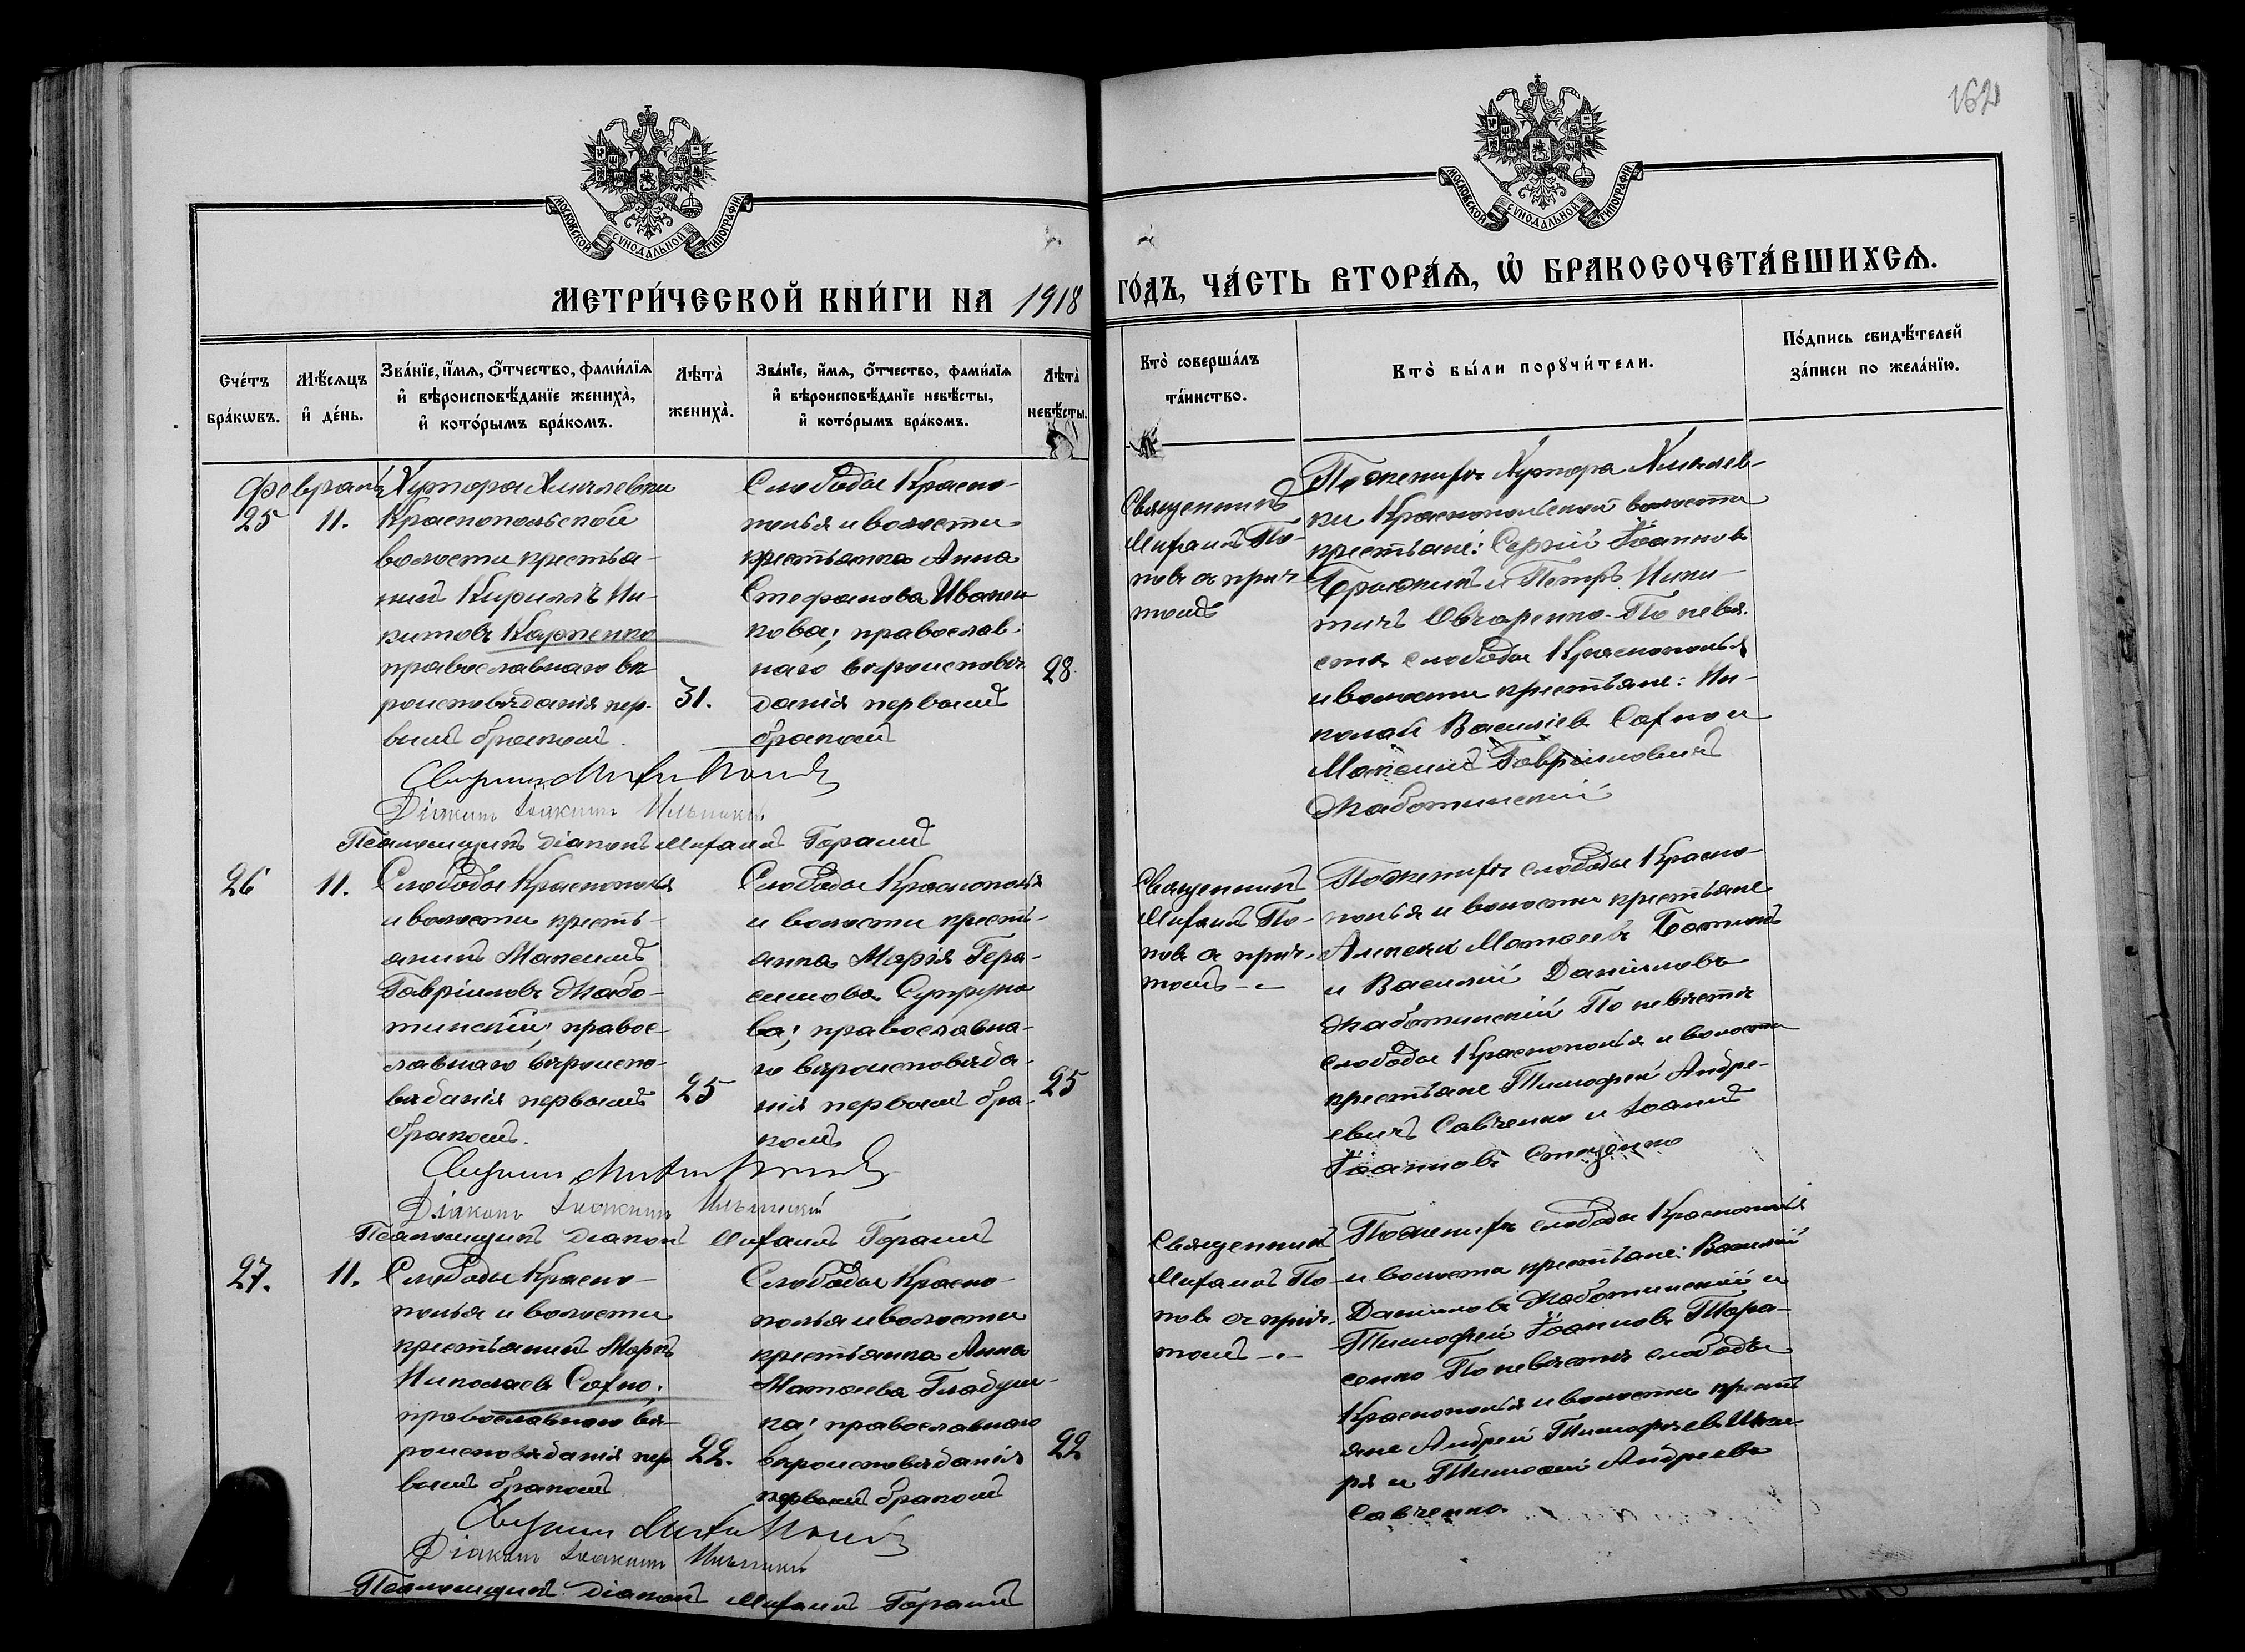 162
МОСКОВСКОЙ СУНОДАЛЬНОЙ ТИПОГРАФІИ.
МОСКОВСКОЙ СУНОДАЛЬНОЙ ТИПОГРАФІИ.
МЕТРИ́ЧЕСКОЙ КНИ́ГИ НА 1918
ГО́ДЪ, ЧА́СТЬ ВТОРА́Ѧ, Ѡ҆ БРАКОСОЧЕТА́ВШИХСѦ.
Сче́тъ
бра́кѡвъ.
Мѣ́сѧцъ
и҆ де́нь.
Зва́нїе, и҆́мѧ, ѻ҆́тчество, фами́лїѧ
и҆ вѣроисповѣ́данїе жениха̀,
и҆ кото́рымъ бра́комъ.
Лѣта̀
жениха̀.
Зва́нїе, и҆́мѧ, ѻ҆́тчество, фами́лїѧ
и҆ вѣроисповѣ́данїе невѣ́сты,
и҆ кото́рымъ бра́комъ.
Лѣта̀
невѣ́сты.
Кто̀ соверша́лъ
та́инство.
Кто̀ бы́ли порꙋчи́тели.
По́дпись свидѣ́телей
за́писи по жела́нїю.
Февраль
25
11.
Хутора
Краснопольской
волости крестья-
нинъ Кириллъ Ни-
китовъ Карпенко
православнаго вѣ-
роисповѣданія пер-
вымъ бракомъ.
31.
Слободы Красно-
полья и волости
крестьянка Анна
Стефанова Иванен
кова; православ-
наго вѣроисповѣ
данія первымъ
бракомъ
28.
Священникъ
Митрофанъ По-
повъ съ прич-
томъ
По женихѣ Хутора
ки Краснопольской волости
крестьяне: Сергій Іоанновъ
и Петръ Ники-
тичъ Овчаренко. По невѣ-
стѣ слободы Краснополья
и волости крестьяне: Ни-
колай Василіевъ Сахно и
Максимъ Гавріиловичъ
Жаботинскій
Діаконъ Іоакимъ
Псаломщикъ діаконъ Митрофанъ
26
11.
Слободы Краснополья
и волости кресть-
янинъ Максимъ
Гавріиловъ Жабо-
тинскій; правос-
лавнаго вѣроиспо-
вѣданія первымъ
бракомъ.
25
Слободы Краснополья
и волости кресть-
янка Марія Гера-
симова Супруно
ва; православна-
го вѣроисповѣда-
нія первымъ бра-
комъ
25
Священникъ
Митрофанъ По-
повъ съ прич-
томъ
По женихѣ слободы Красно-
полья и волости крестьяне
Алексѣй Матѳеевъ
и Василій Даніиловъ
Жаботинскій По невѣстѣ
слободы Краснополья и волости
крестьяне Тимофей Андре-
евичъ Савченко и Іоаннъ
Іоанновъ Стаценко
Діаконъ Іоакимъ
Псаломщикъ діаконъ Митрофанъ
27.
11.
Слободы Красно-
полья и волости
крестьянинъ Маркъ
Николаевъ Сахно;
православнаго вѣ-
роисповѣданія пер
вымъ бракомъ
22.
Слободы Красно-
полья и волости
крестьянка Анна
Матѳеева
ка; православнаго
вѣроисповѣданія
первымъ бракомъ
22
Священникъ
Митрофанъ По-
повъ съ прич-
томъ
По женихѣ слободы Краснополья
и волости крестьяне: Василій
Даніиловъ Жаботинскій и
Тимофей Іоанновъ Тара-
сенко По невѣстѣ слободы
Краснополья и волости кресть
яне Андрей Тимофѣевъ
ря и Тимофей Андреевъ
Савченко.
Діаконъ Іоакимъ
Псаломщикъ діаконъ Митрофанъ